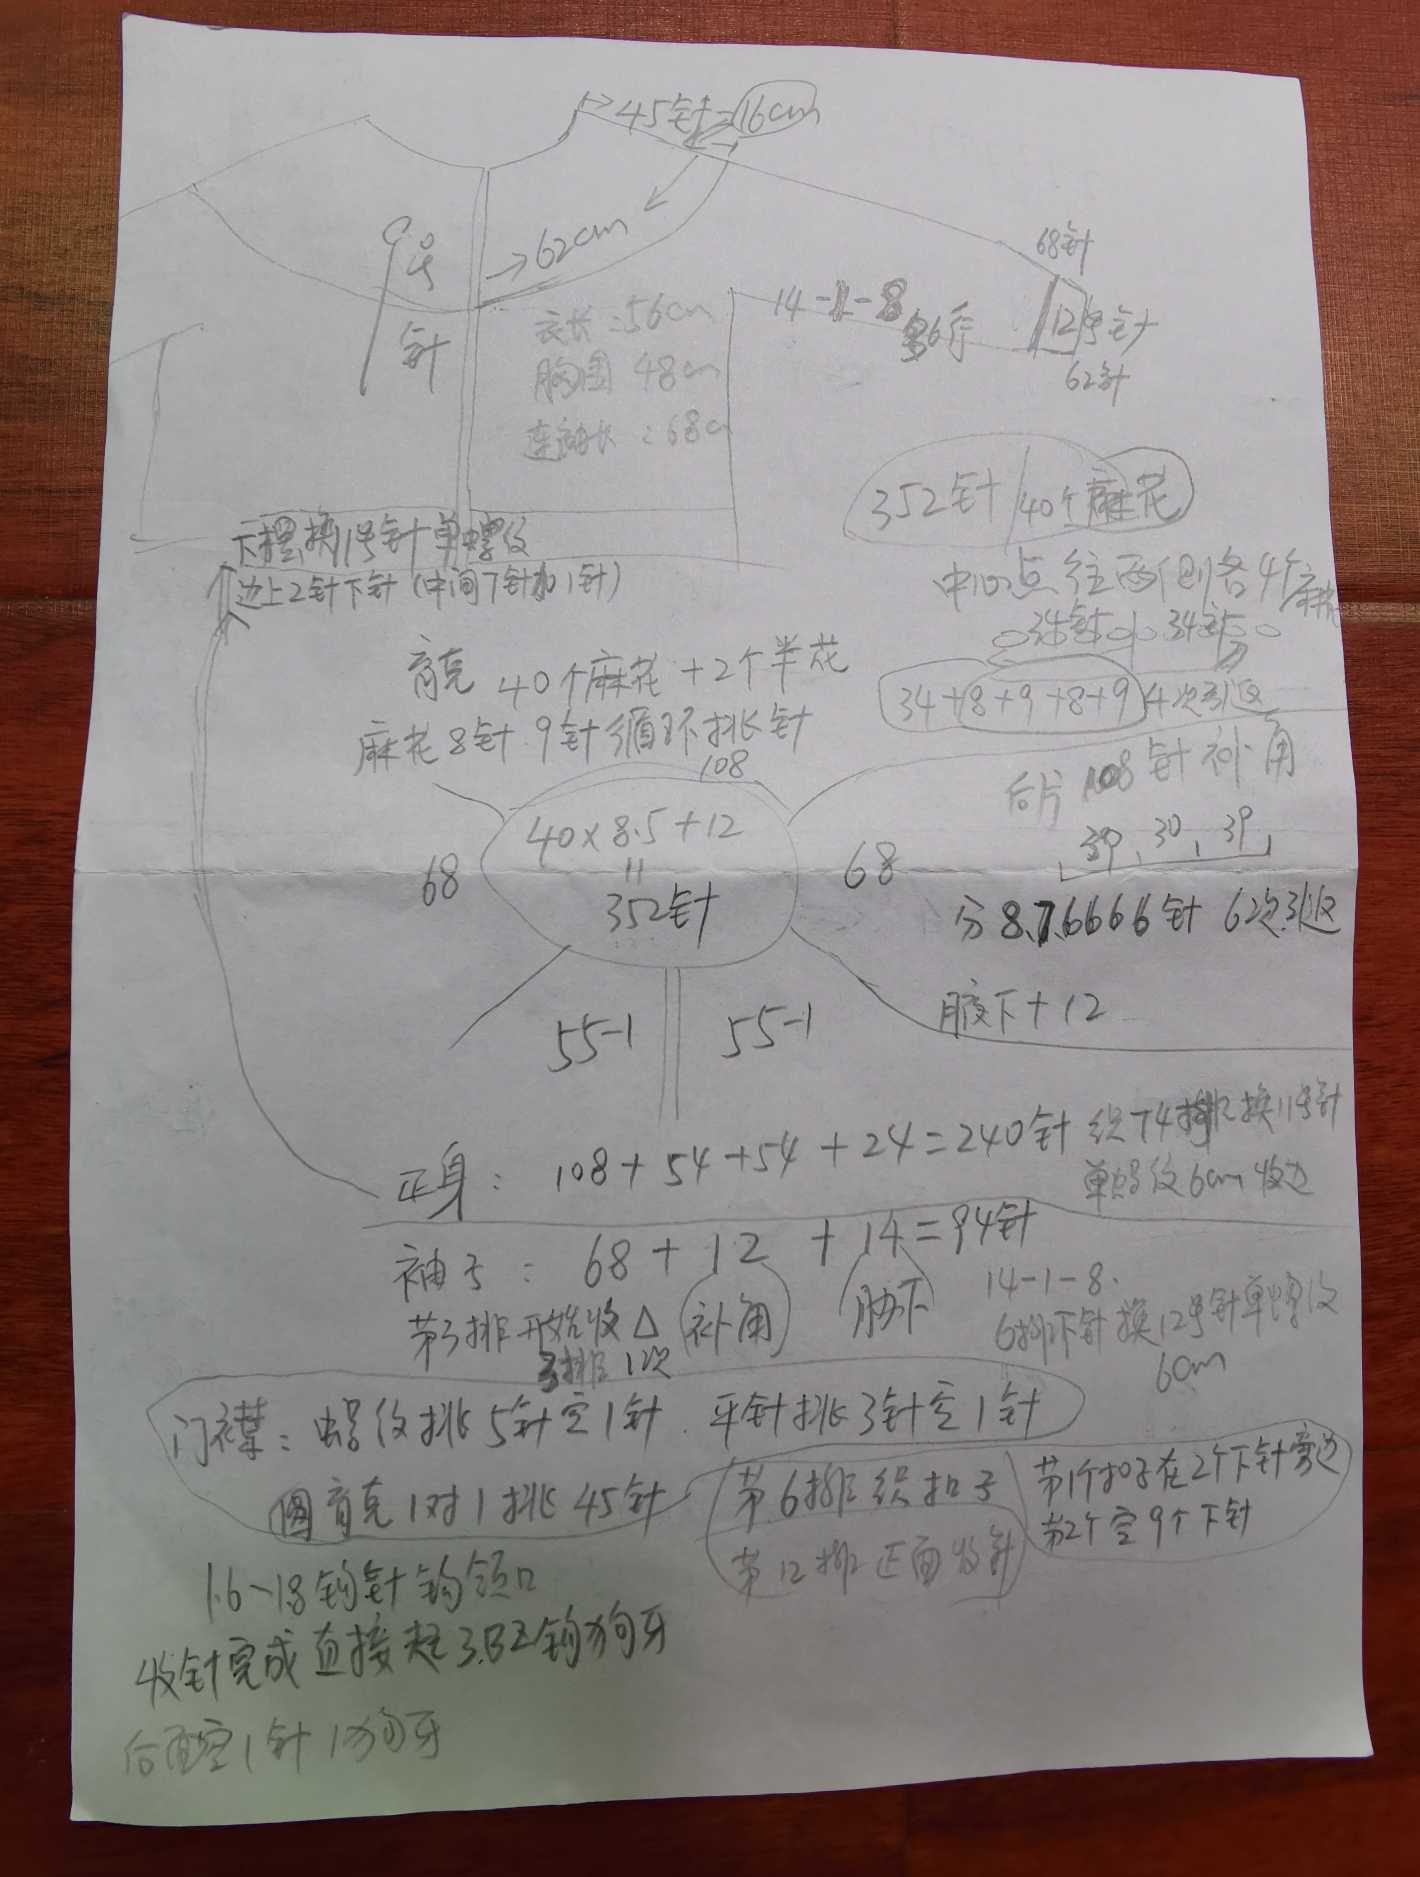 45针=16cm
9号针
62cm
68针
14-1-8
12号针
62针
衣长:56cm
胸围 48cm
连袖长:68c
352针/40个麻花
下摆换11号针单螺纹
边上2针下针(中间7针加1针)
中心点往两侧各4个麻花
34针 34针
育克 40个麻花+2个半花
34+8+9+8+9 4次引返
麻花8针.9针循环挑针
后片108针补角
39、30、39
108
40×8.5+12
=
352针
68
68
分8.7.6666针 6次引返
腋下+12
55-1
55-1
正身: 108+54+54+24=240针 织74排换11号针
单螺纹6cm收边
袖子: 68+12+14=94针
补角
肋下
第3排开始收△
3排1次
14-1-8.
6排下针换12号针单螺纹
6cm
门襟:螺纹挑5针空1针.平针挑3针空1针
圆育克1对1挑45针
第6排织扣子
第12排正面收针
第1个扣子在2个下针旁边
第2个空9个下针
1.6-1.8钩针钩领口
收针完成直接起3.BZ钩狗牙
后面空1针1狗牙